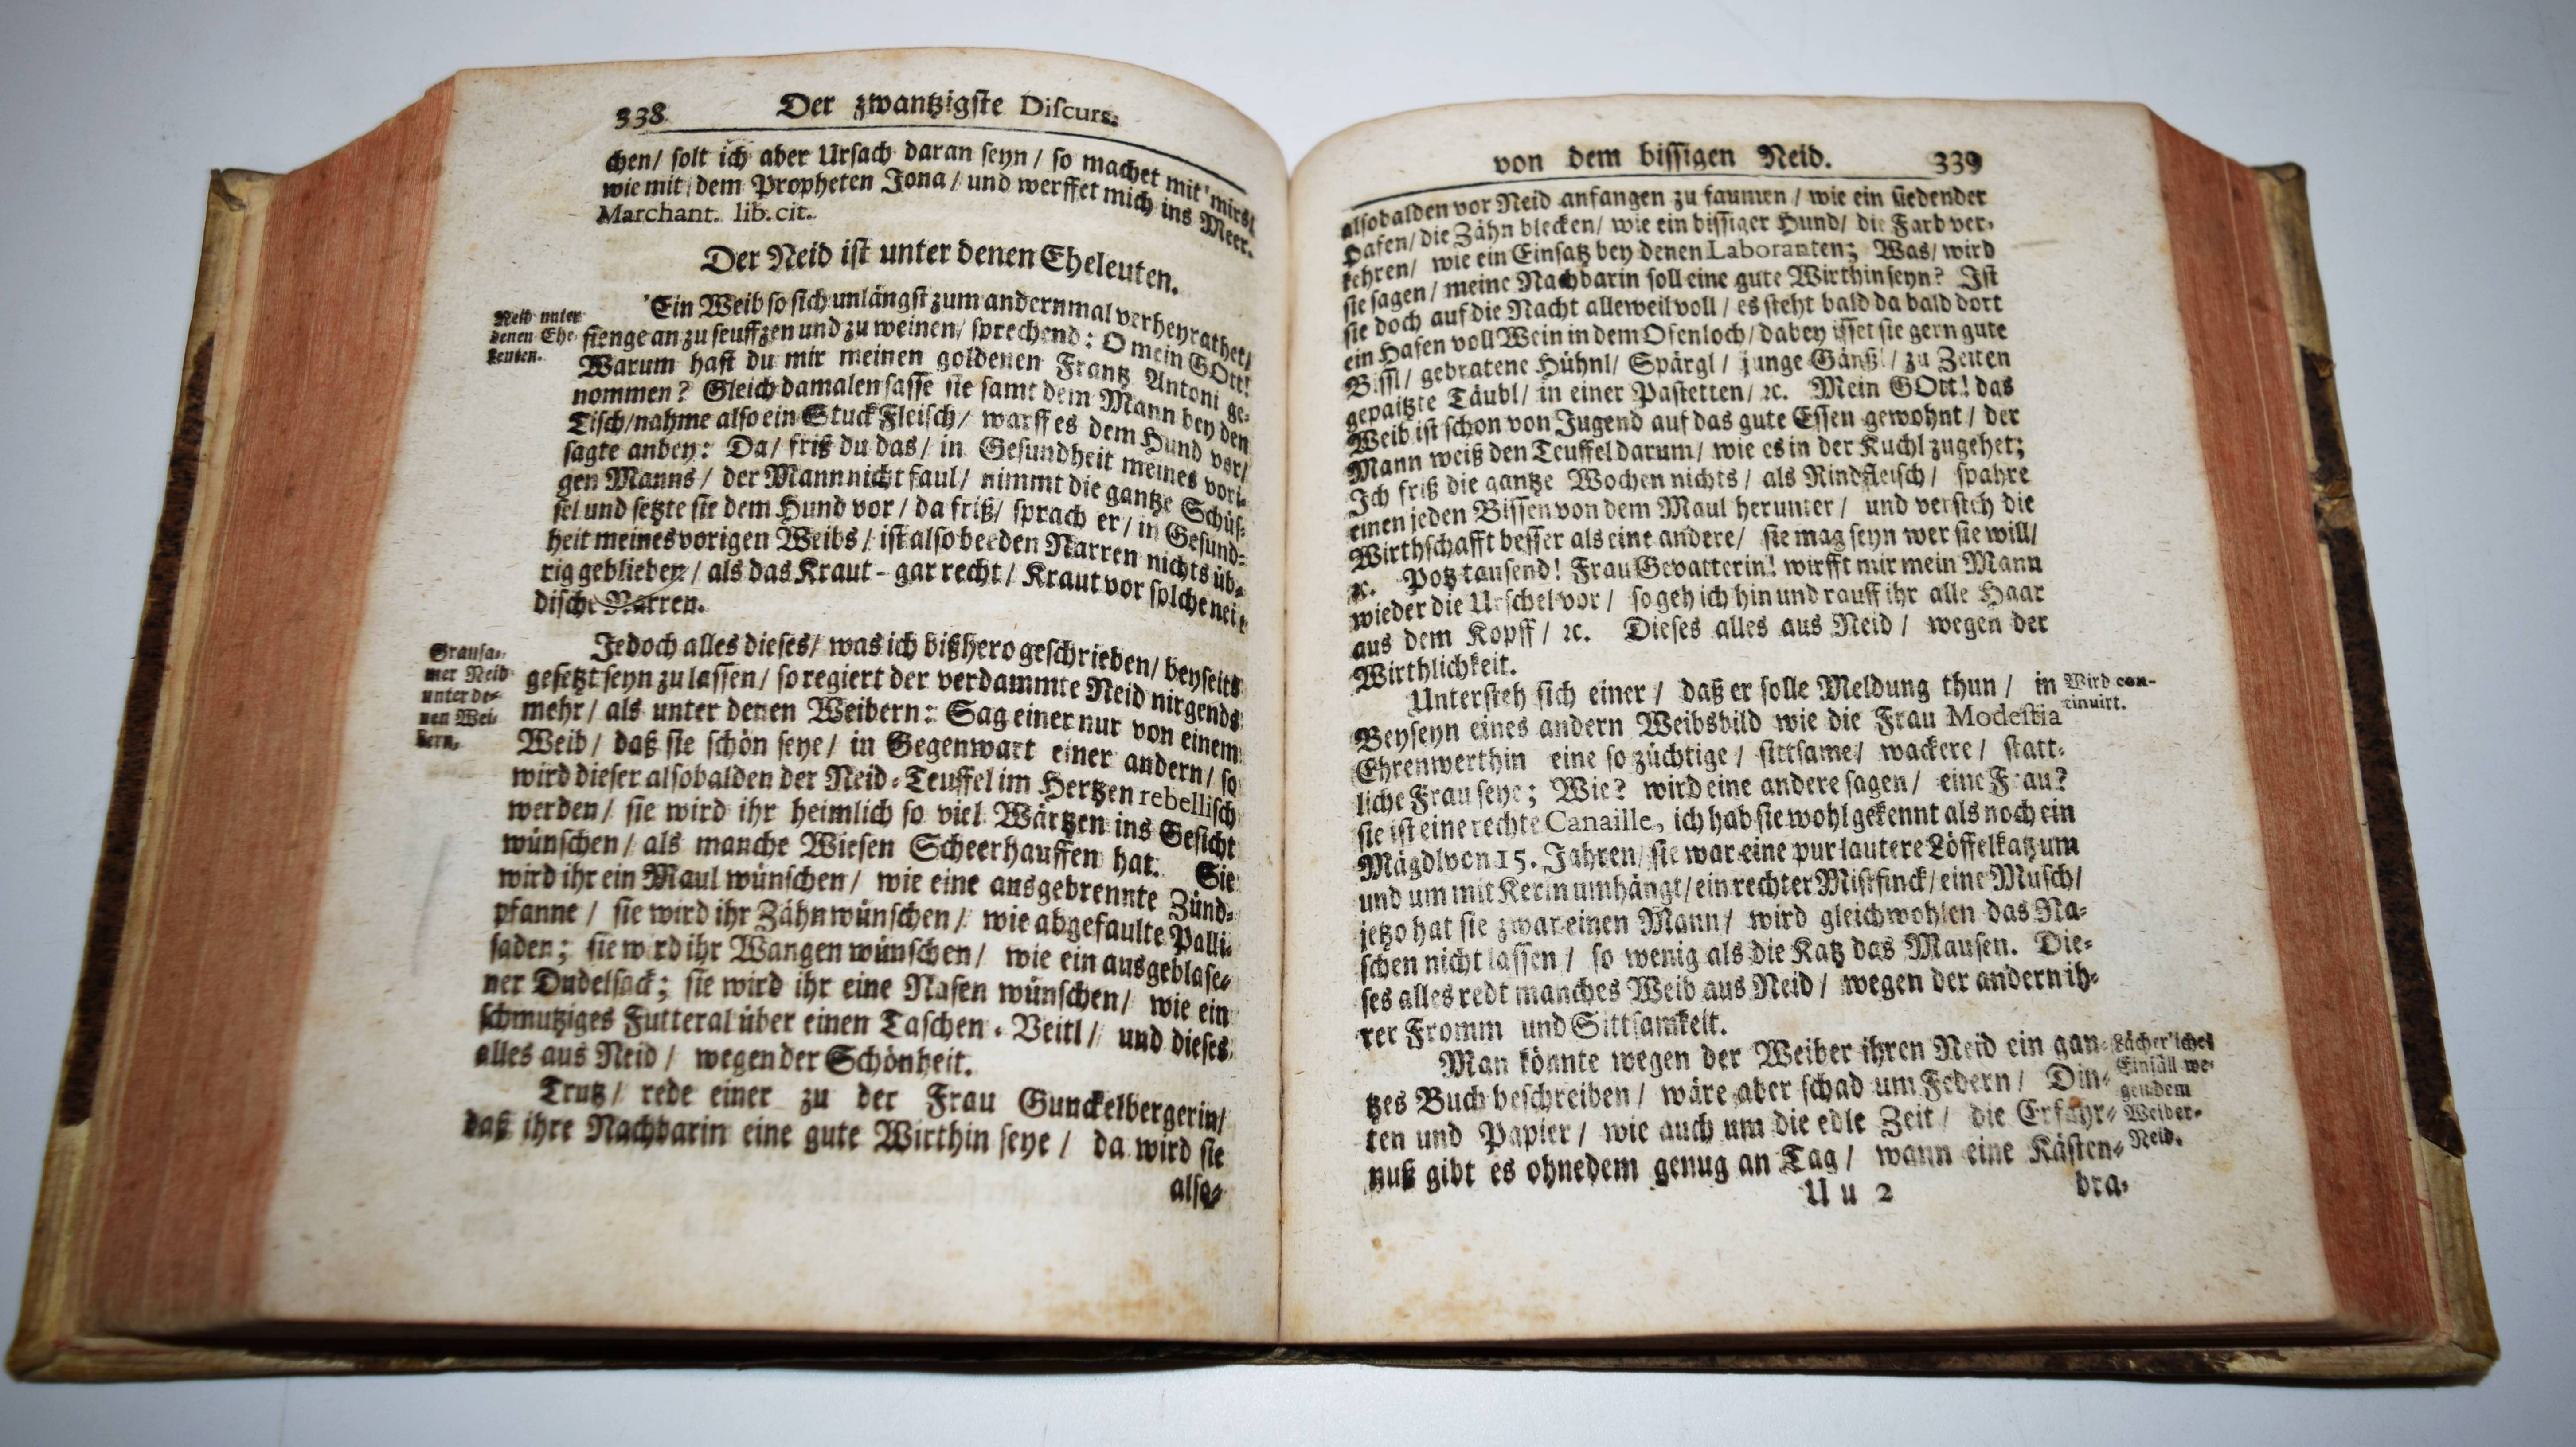 338 Der zwantzigste Discurs.
chen/ solt ich aber Ursach daran seyn/ so machet mit mirs/
wie mit dem Propheten Jona/ und werffet mich ins Meer.
Marchant. lib. cit.
Der Neid ist unter denen Eheleuten.
Neid unter
denen Ehe-
leuten.
Ein Weib so sich unlängst zum andernmal verheyrathet/
fienge an zu seuffzen und zu weinen/ sprechend: O mein GOtt!
Warum hast du mir meinen goldenen Frantz Antoni ge-
nommen? Gleich damalen sasse sie samt dem Mann bey den
Tisch/ nahme also ein Stuck Fleisch/ warff es dem Hund vor/
sagte anbey: Da/ friß du das/ in Gesundheit meines vori-
gen Manns/ der Mann nicht faul/ nimmt die gantze Schüs-
sel und setzte sie dem Hund vor/ da friß/ sprach er/ in Gesund-
heit meines vorigen Weibs/ ist also beeden Narren nichts üb-
rig geblieben/ als das Kraut - gar recht/ Kraut vor solche nei-
dische Narren.
Grausa-
mer Neid
unter de-
nen Wei-
bern.
Jedoch alles dieses/ was ich bißhero geschrieben/ beyseits
gesetzt seyn zu lassen/ so regiert der verdammte Neid nirgends
mehr/ als unter denen Weibern: Sag einer nur von einem
Weib/ daß sie schön seye/ in Gegenwart einer andern/ so
wird dieser alsobalden der Neid-Teuffel im Hertzen rebellisch
werden/ sie wird ihr heimlich so viel Wärtzen ins Gesicht
wünschen/ als manche Wiesen Scheerhauffen hat. Sie
wird ihr ein Maul wünschen/ wie eine ausgebrennte Zünd-
pfanne/ sie wird ihr Zähn wünschen/ wie abgefaulte Palli-
saden; sie wird ihr Wangen wünschen/ wie ein ausgeblase-
ner Dudelsack; sie wird ihr eine Nasen wünschen/ wie ein
schmutziges Futteral über einen Taschen-Veitl/ und dieses
alles aus Neid/ wegen der Schönheit.
Trutz/ rede einer zu der Frau Gunckelbergerin/
daß ihre Nachbarin eine gute Wirthin seye/ da wird sie
also-
von dem bissigen Neid. 339
alsobalden vor Neid anfangen zu faumen/ wie ein siedender
Hafen/ die Zähn blecken/ wie ein bissiger Hund/ die Farb ver-
kehren/ wie ein Einsatz bey denen Laboranten; Was/ wird
sie sagen/ meine Nachbarin soll eine gute Wirthin seyn? Ist
sie doch auf die Nacht alleweil voll/ es steht bald da bald dort
ein Hafen voll Wein in dem Ofenloch/ dabey isset sie gern gute
Bissl/ gebratene Hühnl/ Spärgl/ junge Gänßl/ zu Zeiten
gepaitzte Täubl/ in einer Pastetten/ ꝛc. Mein GOtt! das
Weib ist schon von Jugend auf das gute Essen gewohnt/ der
Mann weiß den Teuffel darum/ wie es in der Kuchl zugehet;
Ich friß die gantze Wochen nichts/ als Rindfleisch/ spahre
einen jeden Bissen von dem Maul herunter/ und versteh die
Wirthschafft besser als eine andere/ sie mag seyn wer sie will/
ꝛc. Potz tausend! Frau Gevatterin! wirfft mir mein Mann
wieder die Urschel vor/ so geh ich hin und rauff ihr alle Haar
aus dem Kopff/ ꝛc. Dieses alles aus Neid/ wegen der
Wirthlichkeit.
Untersteh sich einer/ daß er solle Meldung thun/ in
Wird con-
tinuirt.
Beyseyn eines andern Weibsbild wie die Frau Modestia
Ehrenwerthin eine so züchtige/ sittsame/ wackere/ statt-
liche Frau seye; Wie? wird eine andere sagen/ eine Frau?
sie ist eine rechte Canaille, ich hab sie wohl gekennt als noch ein
Mägdl von 15. Jahren/ sie war eine pur lautere Löffelkatz um
und um mit Kerln umhängt/ ein rechter Mistfinck/ eine Musch/
jetzo hat sie zwar einen Mann/ wird gleichwohlen das Na-
schen nicht lassen/ so wenig als die Katz das Mausen. Die-
ses alles redt manches Weib aus Neid/ wegen der andern ih-
rer Fromm und Sittsamkeit.
Man könnte wegen der Weiber ihren Neid ein gan-
Lächerliches
Einfäll we-
gen dem
Weiber-
Neid.
tzes Buch beschreiben/ wäre aber schad um Federn/ Din-
ten und Papier/ wie auch um die edle Zeit/ die Erfahr-
nuß gibt es ohnedem genug an Tag/ wann eine Kästen-
Uu 2 bra-